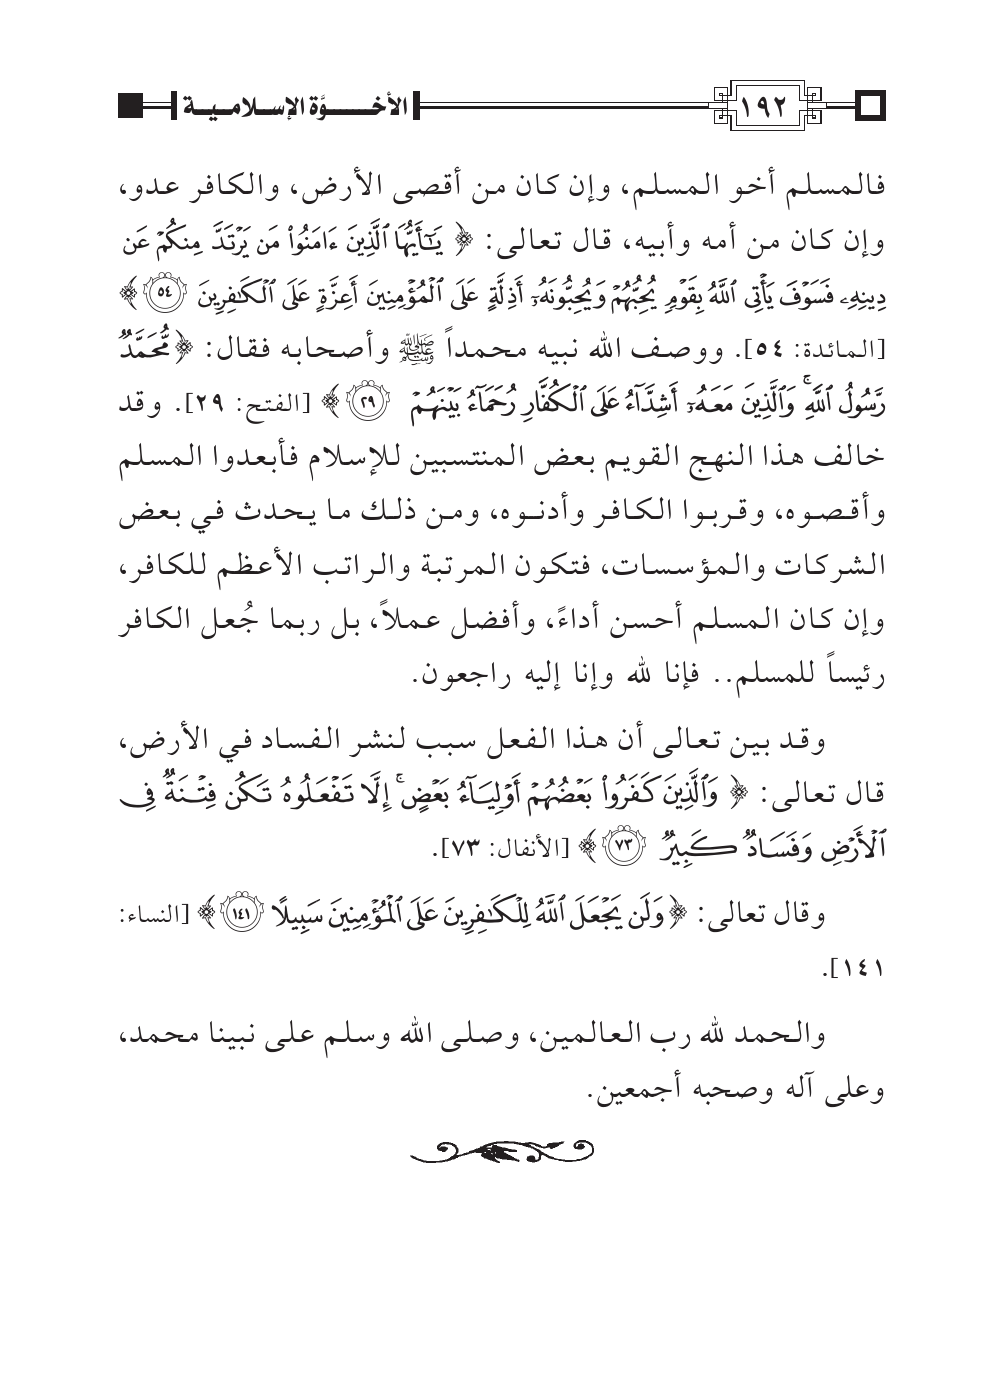 ١٩٢ الأخـــوَّة الإسـلامـيـة
فالمسلم أخو المسلم، وإن كان من أقصى الأرض، والكافر عدو،
وإن كان من أمه وأبيه، قال تعالى: ﴿يَـٰٓأَيُّهَا ٱلَّذِينَ ءَامَنُوا۟ مَن يَرْتَدَّ مِنكُمْ عَن
دِينِهِۦ فَسَوْفَ يَأْتِى ٱللَّهُ بِقَوْمٍ يُحِبُّهُمْ وَيُحِبُّونَهُۥٓ أَذِلَّةٍ عَلَى ٱلْمُؤْمِنِينَ أَعِزَّةٍ عَلَى ٱلْكَـٰفِرِينَ ٥٤﴾
[المائدة: ٥٤]. ووصف الله نبيه محمداً ﷺ وأصحابه فقال: ﴿مُّحَمَّدٌ
رَّسُولُ ٱللَّهِ ۚ وَٱلَّذِينَ مَعَهُۥٓ أَشِدَّآءُ عَلَى ٱلْكُفَّارِ رُحَمَآءُ بَيْنَهُمْ ٢٩﴾ [الفتح: ٢٩]. وقد
خالف هذا النهج القويم بعض المنتسبين للإسلام فأبعدوا المسلم
وأقصوه، وقربوا الكافر وأدنوه، ومن ذلك ما يحدث في بعض
الشركات والمؤسسات، فتكون المرتبة والراتب الأعظم للكافر،
وإن كان المسلم أحسن أداءً، وأفضل عملاً، بل ربما جُعل الكافر
رئيساً للمسلم.. فإنا لله وإنا إليه راجعون.
وقد بين تعالى أن هذا الفعل سبب لنشر الفساد في الأرض،
قال تعالى: ﴿وَٱلَّذِينَ كَفَرُوا۟ بَعْضُهُمْ أَوْلِيَآءُ بَعْضٍ ۚ إِلَّا تَفْعَلُوهُ تَكُن فِتْنَةٌ فِى
ٱلْأَرْضِ وَفَسَادٌ كَبِيرٌ ٧٣﴾ [الأنفال: ٧٣].
وقال تعالى: ﴿وَلَن يَجْعَلَ ٱللَّهُ لِلْكَـٰفِرِينَ عَلَى ٱلْمُؤْمِنِينَ سَبِيلًا ١٤١﴾ [النساء:
١٤١].
والحمد لله رب العالمين، وصلى الله وسلم على نبينا محمد،
وعلى آله وصحبه أجمعين.